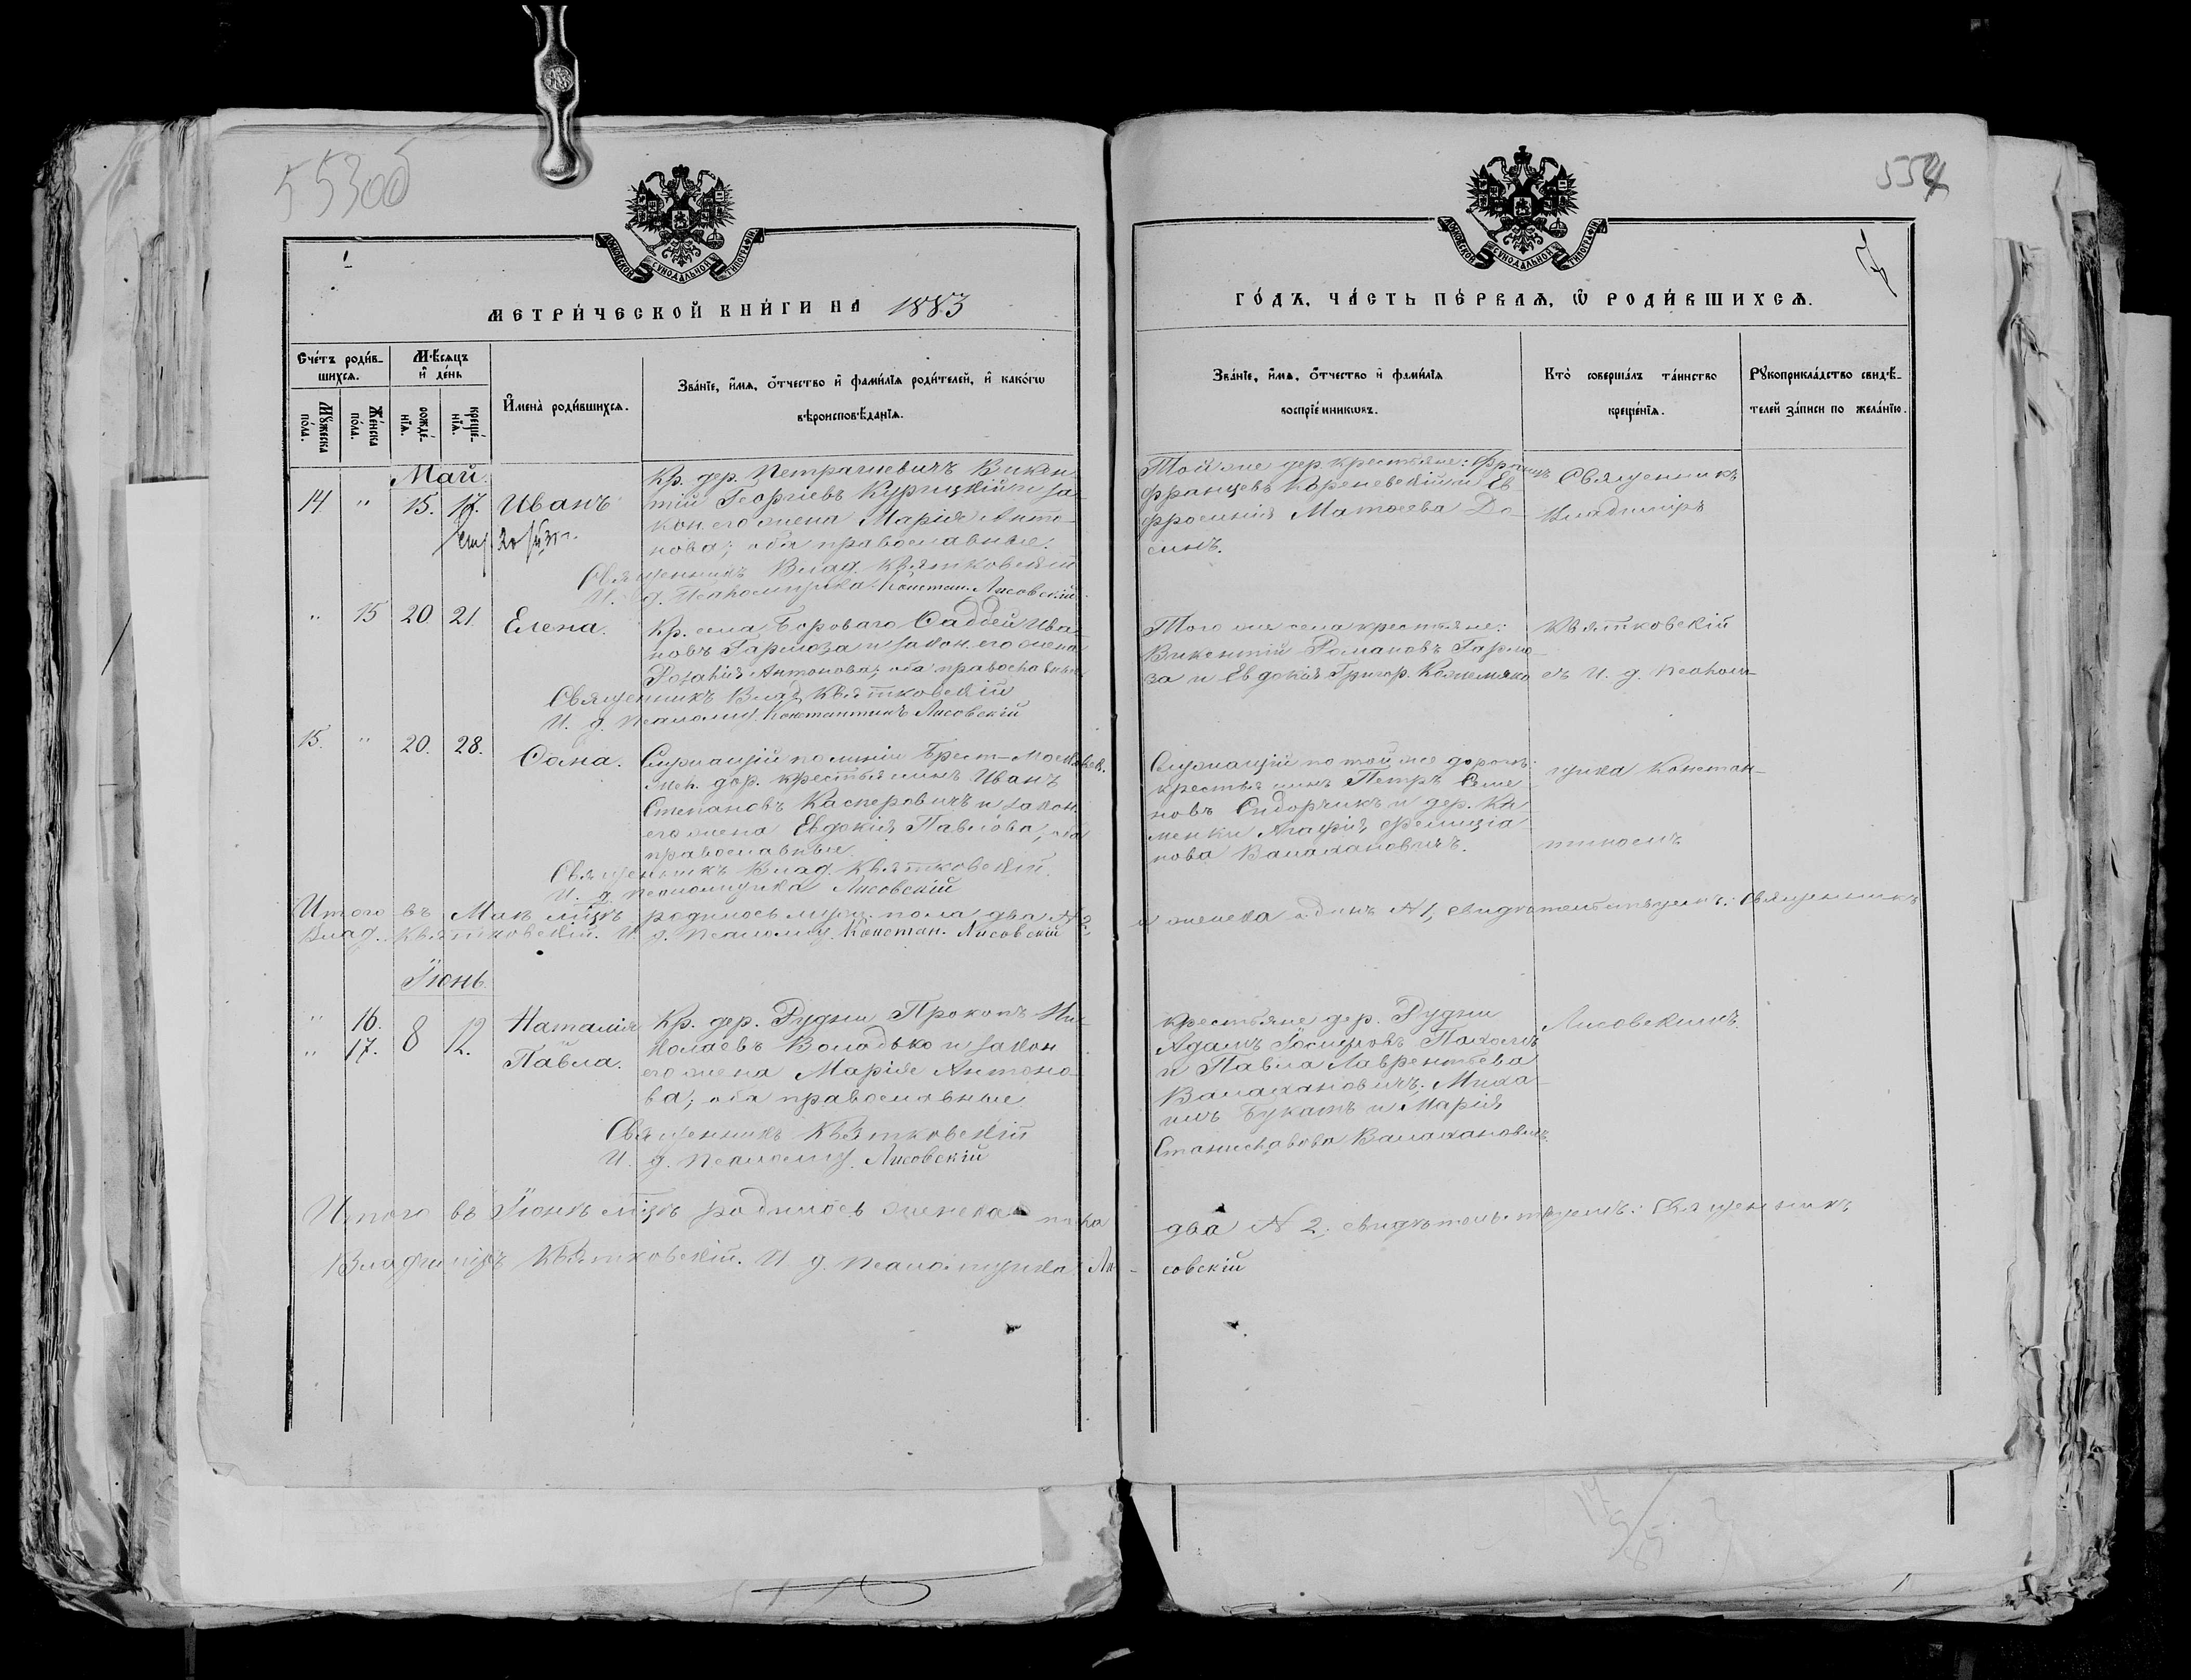 553об
554
5
МОСКОВСКОЙ СѴНОДАЛЬНОЙ ТИПОГРАФІИ
МОСКОВСКОЙ СѴНОДАЛЬНОЙ ТИПОГРАФІИ
МЕТРИ́ЧЕСКОЙ КНИ́ГИ НА 1883
ГО́ДЪ, ЧА́СТЬ ПЕ́РВАЯ, Ѡ РОДИ́ВШИХСЯ.
Сче́тъ роди́вшихся.
Мѣ́сяцъ и҆ де́нь
Мꙋ́жеска по́ла.
Же́нска по́ла.
рожде́нїя.
креще́нїя.
И҆мена̀ роди́вшихся.
Зва́нїе, и҆́мя, ѻ҆́тчество и҆ фами́лїя роди́телей, и҆ како́гѡ
вѣроисповѣ́данїя.
Зва́нїе, и҆́мя, ѻ҆́тчество и҆ фами́лїя
воспрїе́мниковъ.
Кто̀ соверша́лъ та́инство
креще́нїя.
Рꙋкоприкла́дство свидѣ́-
телей за́писи по жела́нїю.
Май.
14 " 15. 17. Иванъ
Кр. дер. Петрашкевичъ Викен-
тій Георгіевъ Курицкій и за-
кон. его жена Марія Анто-
нова; оба православные.
Священникъ Влад. Квятковскій
И. д. Псаломщика Констан. Лисовскій
Той же дер. крестьяне: Францъ
Францевъ Кореневскій и Ев
фросинія Матѳеева До-
Священникъ
Владиміръ
" 15 20 21 Елена.
Кр. села Борового Фаддей Ива-
новъ Гармоза и закон. его жена
Розалія Антонова; оба православные
Священникъ Влад. Квятковскій
И. д. псаломщ. Константинъ Лисовскій
Того же села крестьяне:
Викентій Романовъ Гармо-
за и Евдокія Григор. Кожемяко
Квятковскій
съ И. д. псалом-
15. " 20. 28. Ѳома.
Служащій по линіи Брест-Московск.
жел. дор. крестьянинъ Иванъ
Степановъ Касперовичъ и закон.
его жена Евдокія Павлова, оба
православные.
Священникъ Влад. Квятковскій.
И. д. псаломщика Лисовскій
Служащій по той же дорогѣ:
крестьянинъ Петръ Семе
новъ Сидорчикъ и дер. Кли
менки Агафія Фелиціа
нова Валахановичъ.
щика Констан-
тиномъ
Итого въ Маѣ мѣцѣ родилось муж. пола два № 2
и женска одинъ № 1, свидѣтельствуемъ: Священникъ
Влад. Квятковскій. И. д. псаломщ. Констан. Лисовскій
Іюнь
" 16.
" 17. 8 12. Наталія
Павла.
Кр. дер. Рудни Прокопъ Ни-
колаевъ Володько и закон
его жена Марія Антоно-
ва; оба православные
Священникъ Квятковскій
И. д. псаломщ. Лисовскій
Крестьяне дер. Рудни
Адамъ Іосифовъ
и Павла Лаврентьева
Валахановичъ; Миха-
илъ Букатъ и Марія
Станиславова Валахановичъ
Лисовскимъ.
Итого въ Іюнѣ мѣцѣ родилось женска пола
два № 2. свидѣтельствуемъ: Священникъ
Владиміръ Квятковскій. И д. псаломщика Ли-
совскій